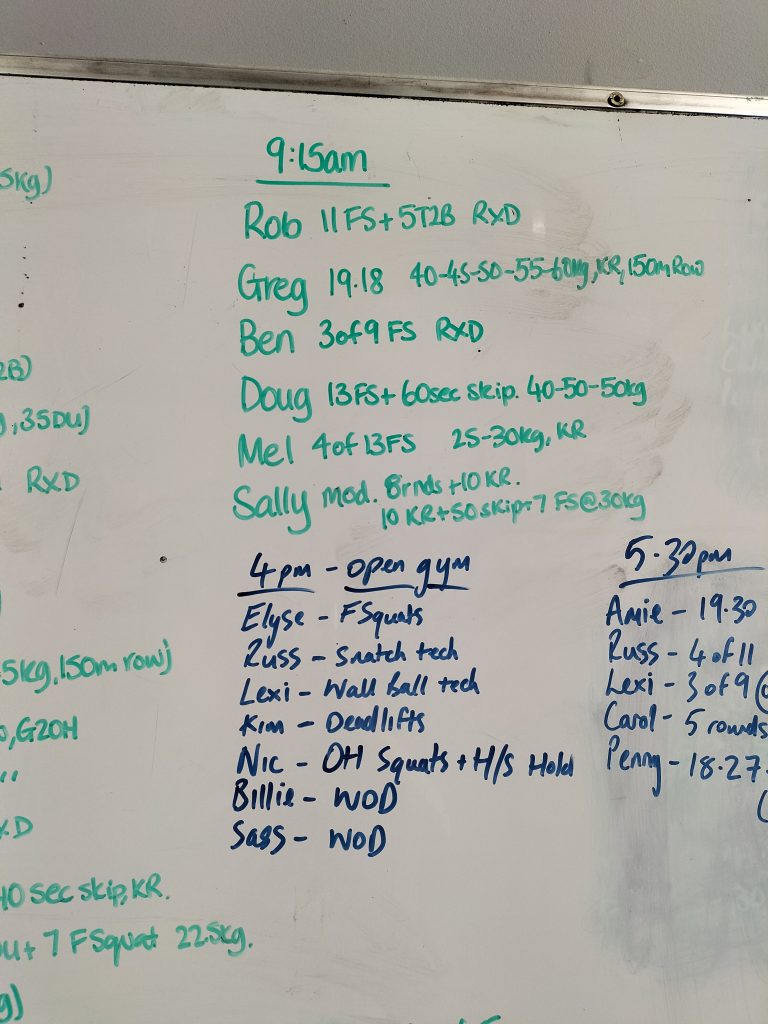 9:15am
Rob 11 FS + 5T2B RXD
Greg 19.18 40-45-50-55-60kg, KR, 150m Row
Ben 3 of 9 FS RXD
Doug 13 FS + 60sec skip. 40-50-50kg
Mel 4 of 13 FS 25-30kg, KR
Sally mod. 8rnds + 10 KR.
10 KR + 50 skip + 7 FS @ 30kg
4pm - open gym
Elyse - FSquats
Russ - Snatch tech
Lexi - Wall Ball tech
Kim - Deadlifts
Nic - OH Squats + H/S Hold
Billie - WOD
Sass - WOD
5.30pm
Amie - 19.30
Russ - 4 of 11
Lexi - 3 of 9
Carol - 5 rounds
Penny - 18.27
5kg)
2B)
, 35DU)
RXD
5kg, 150m row)
, G2OH
XD
40 sec skip, KR.
DU + 7 FSquat 22.5kg.
g)